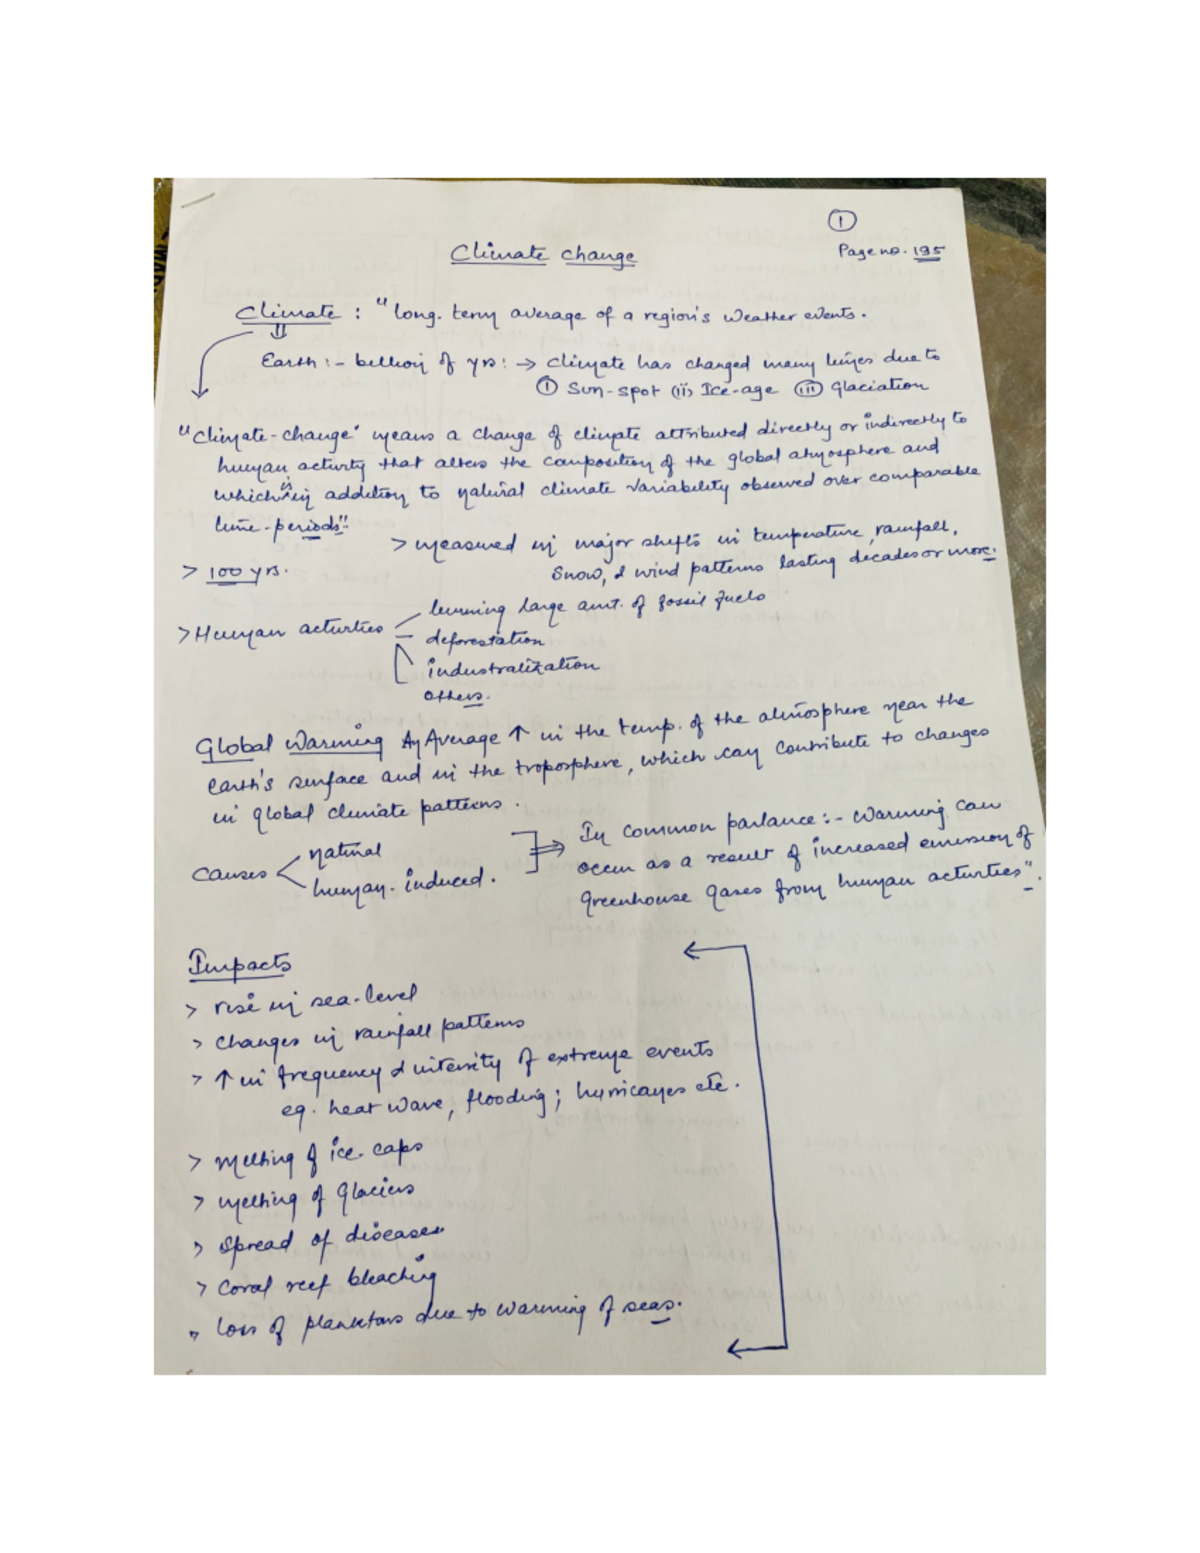 ①
Climate change
Page no. 195
Climate : "long-term average of a region's weather events.
Earth :- billion of yrs: → climate has changed many times due to
① Sun-spot (ii) Ice-age (iii) glaciation
"Climate-change" means a change of climate attributed directly or indirectly to
human activity that alters the composition of the global atmosphere and
which is in addition to natural climate variability observed over comparable
time-periods"
> measured in major shifts in temperature, rainfall,
snow, & wind patterns lasting decades or more.
> 100 yrs.
> Human activities
burning large amt. of fossil fuels
deforestation
industralization
others.
Global Warming An Average ↑ in the temp. of the atmosphere near the
Earth's surface and in the troposphere, which can contribute to changes
in global climate patterns.
causes
natural
human-induced.
In common parlance :- warming can
occur as a result of increased emission of
greenhouse gases from human activities".
Impacts
> rise in sea-level
> changes in rainfall patterns
> ↑ in frequency & intensity of extreme events
eg. heat wave, flooding; hurricanes etc.
> melting of ice-caps
> melting of glaciers
> spread of diseases
> coral reef bleaching
> loss of planktons due to warming of seas.